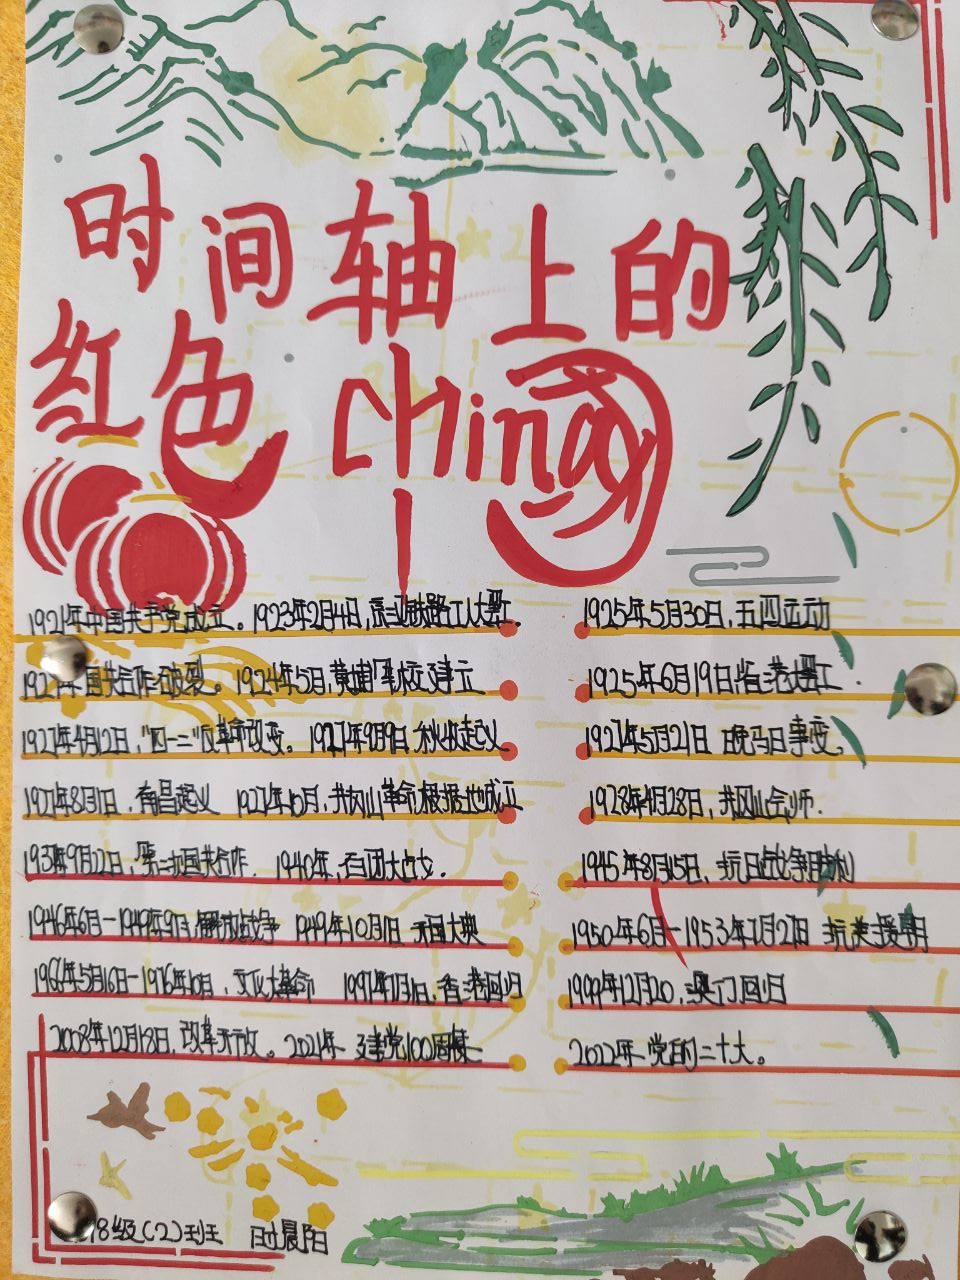 时间轴上的
红色China
1921年中国共产党成立。1923年2月4日,京汉铁路工人大罢工。
1925年5月30日,五四运动
1927年国共合作破裂。1924年5月,黄埔军校建立
1925年6月19日省港大罢工.
1927年4月12日,"四一二"反革命政变。1927年9月9日,秋收起义
1927年5月21日 晚马日事变。
1927年8月1日,南昌起义 1927年10月,井冈山革命根据地成立
1928年4月28日,井冈山会师.
1937年9月22日,第二次国共合作. 1940年,百团大战.
1945年8月15日,抗日战争胜利
1946年6月-1949年9月 解放战争 1949年10月1日 开国大典
1950年6月-1953年7月27日 抗美援朝
1966年5月16日-1976年10月,文化大革命 1997年7月1日,香港回归
1999年12月20,澳门回归
2008年12月18日,改革开放。2021年 建党100周年
2022年 党的二十大。
18级(2)班 时晨阳